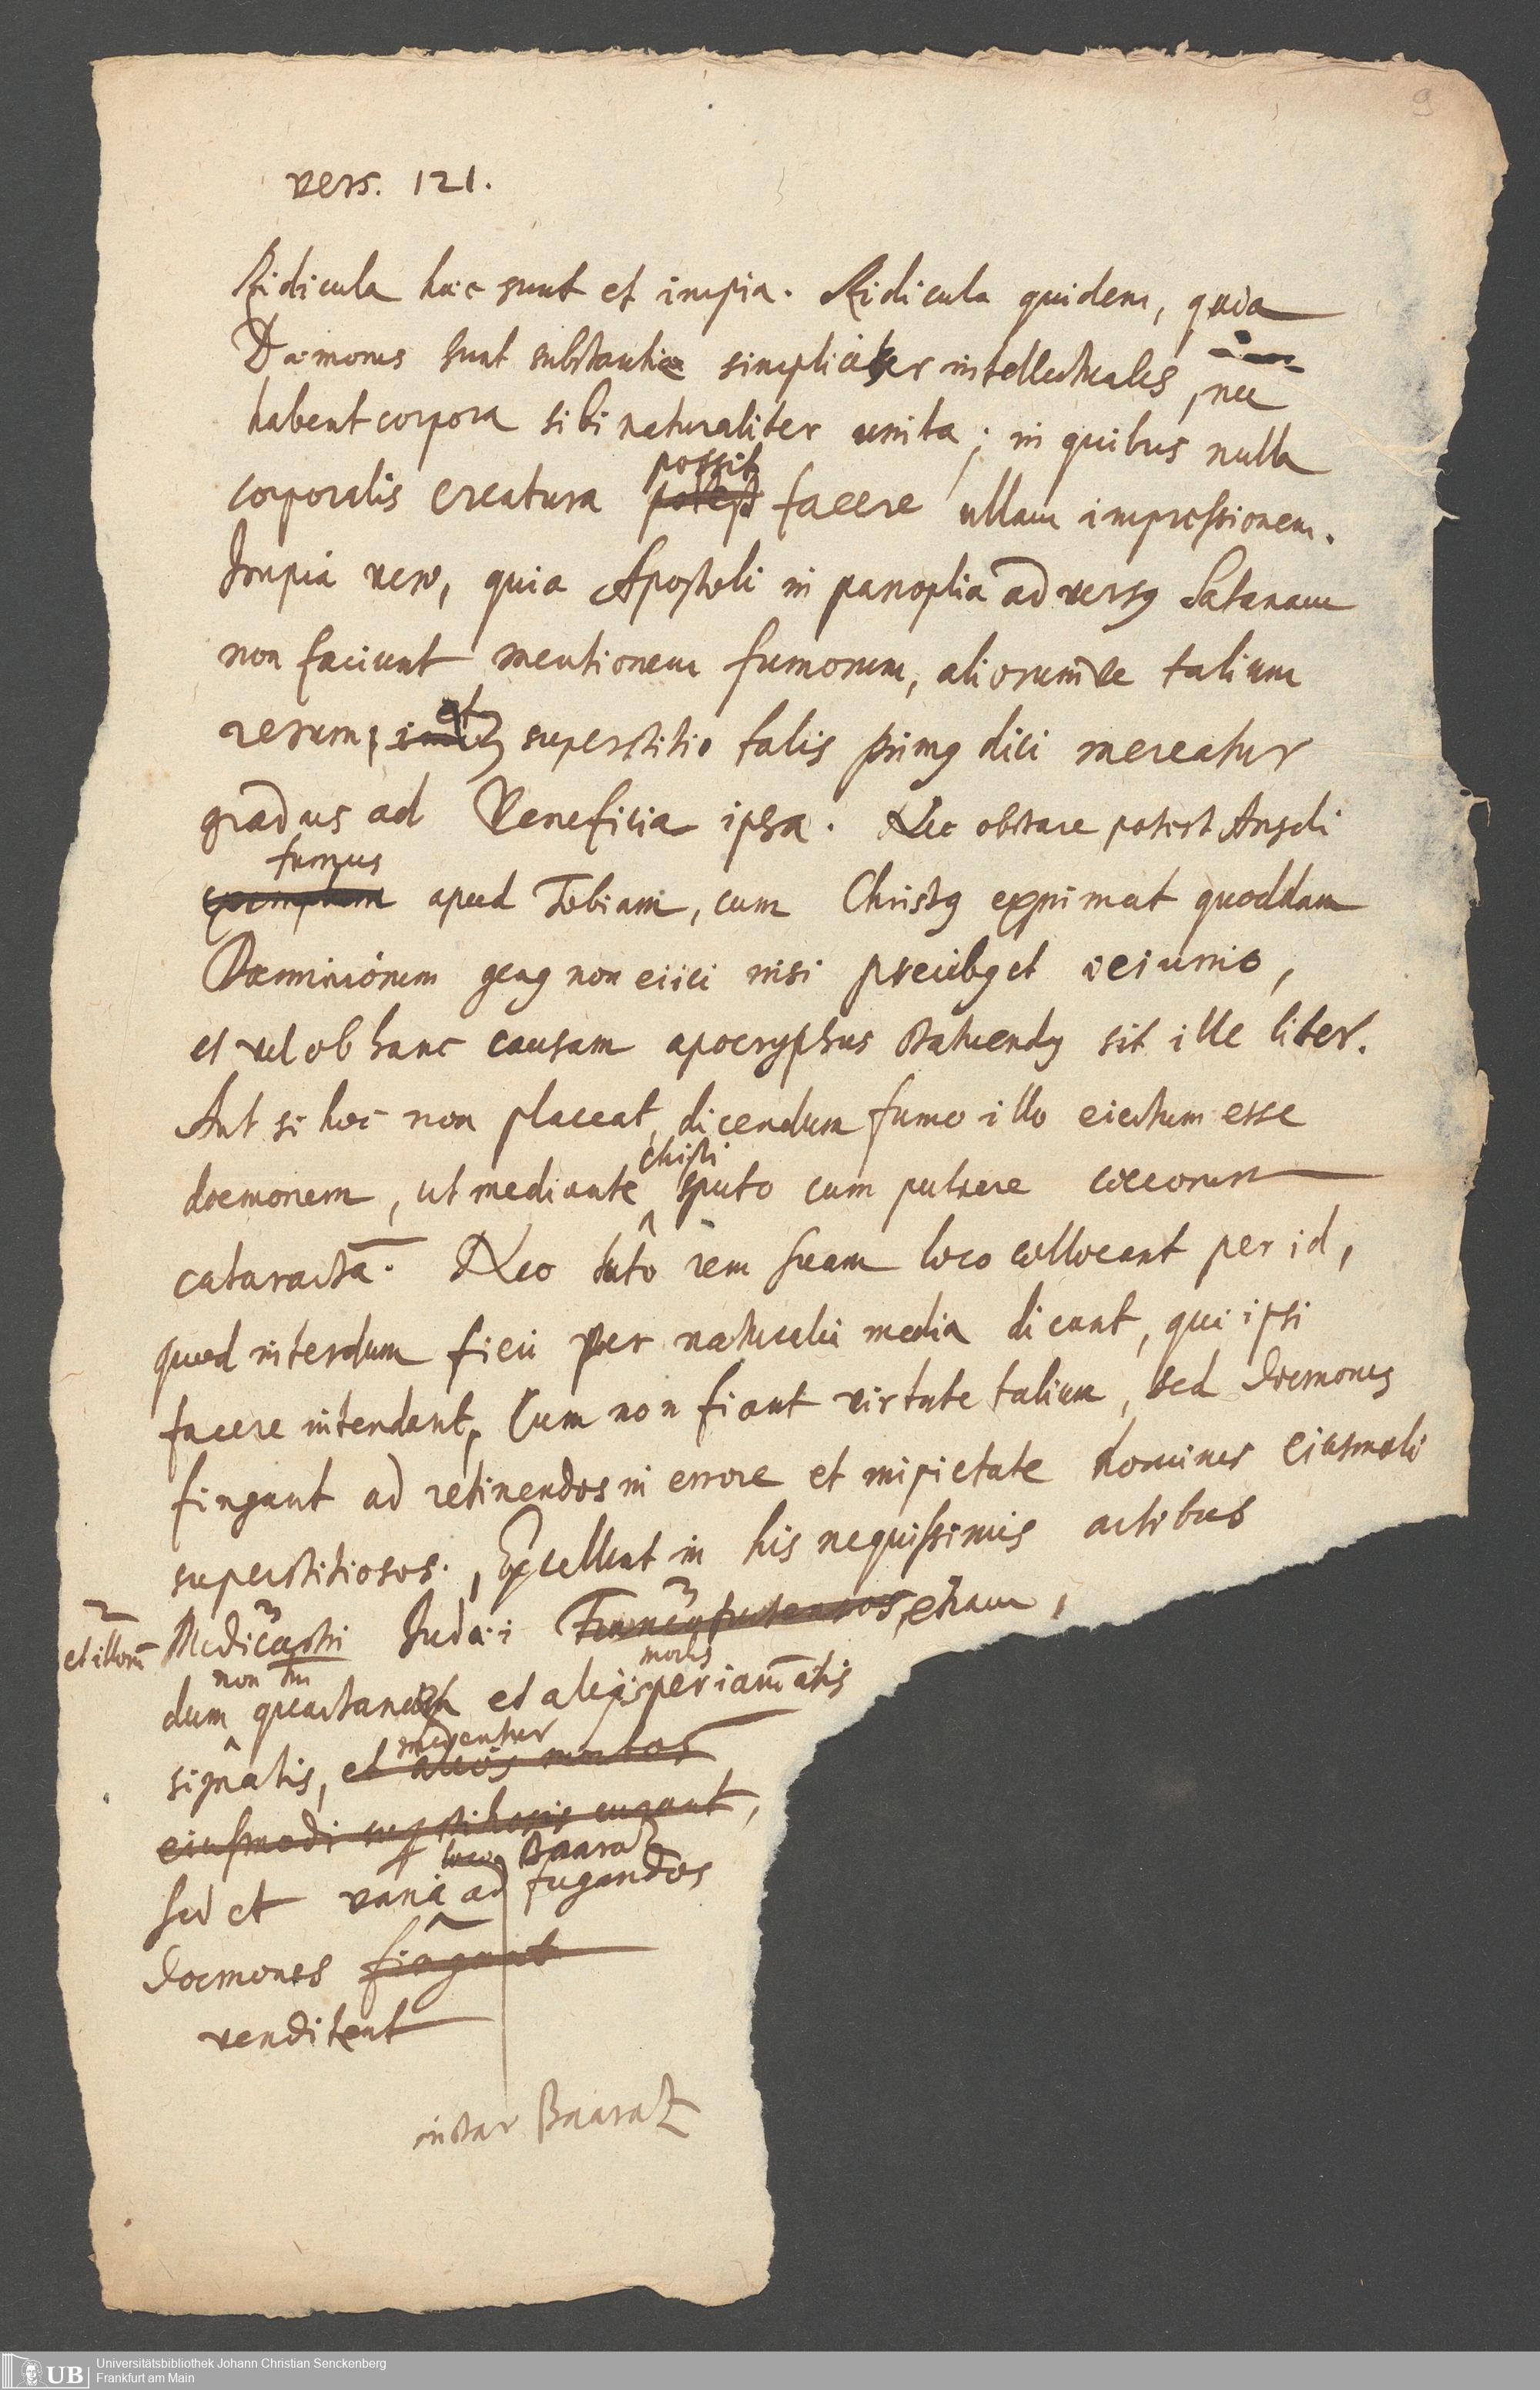 9
vers. 121.
Ridicula hæc sunt et impia. Ridicula quidem, quia
Dæmones sunt substantiæ simpliciter intellectuales, nec
habent corpora sibi naturaliter unita; in quibus nulla
possit
corporalis creatura potest facere ullam impressionem.
Impia vero, quia Apostoli in panoplia adversꝰ Satanam
non faciunt mentionem fumorum, aliorumve talium
et
rerum, superstitio talis primꝰ dici mereatur
gradus ad Veneficia ipsa. Nec obstare potest Angeli
fumus
exemplum apud Tobiam, cum Christꝰ exprimat quoddam
Dæmoniorum genꝰ non eiici nisi precibꝰ et ieiunio,
et vel ob hanc causam apocryphus statuendꝰ sit ille liber.
Aut si hoc non placeat, dicendum fumo illo eiectum esse
Christi
dæmonem, ut mediante sputo cum pulvere cœcorum
cataracta. Nec tuto rem suam loco collocant per id,
quod interdum fieri per naturalia media dicunt, qui ipsi
facere intendant, Cum non fiant virtute talium, sed dæmones
fingant ad retinendos in errore et impietate homines eiusmodi
superstitiosos. Excellunt in his nequissimis actibus
et illorū Medicastri Judæi etiam,
non tm̄ morbis
dum quartanæ et alijs periam̄atis
medentur
signatis, et alios morbos
eiusmodi curant,
loco Baaraz
sed et varia ad fugandos
dæmones fingant
venditent
instar Baaraz
Universitätsbibliothek Johann Christian Senckenberg
Frankfurt am Main
UB